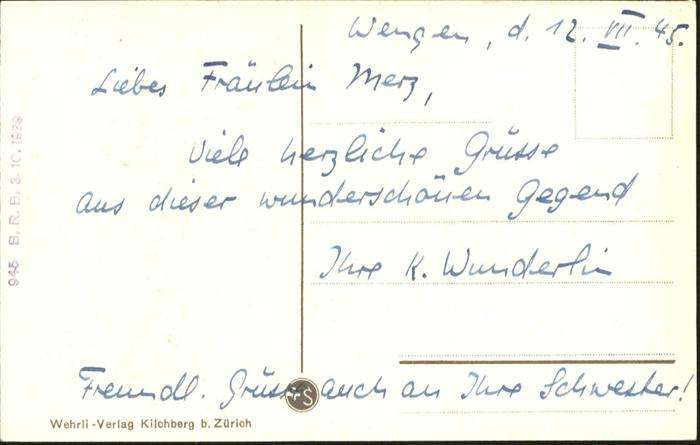 Wengen, d. 12. VII. 45.
Liebes Fräulein Merz,
Viele herzliche Grüsse
aus dieser wunderschönen Gegend
Ihre K. Wunderlin
Freundl. Grüsse auch an Ihre Schwester!
Wehrli-Verlag Kilchberg b. Zürich
945 B. R. B. 3. 10. 1939